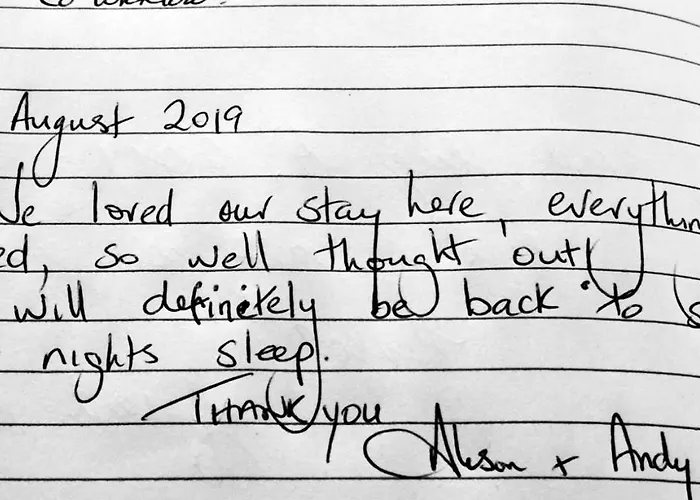 August 2019
We loved our stay here, everythin
ed, so well thought out
will definitely be back to s
nights sleep.
THANK YOU
Alison + Andy